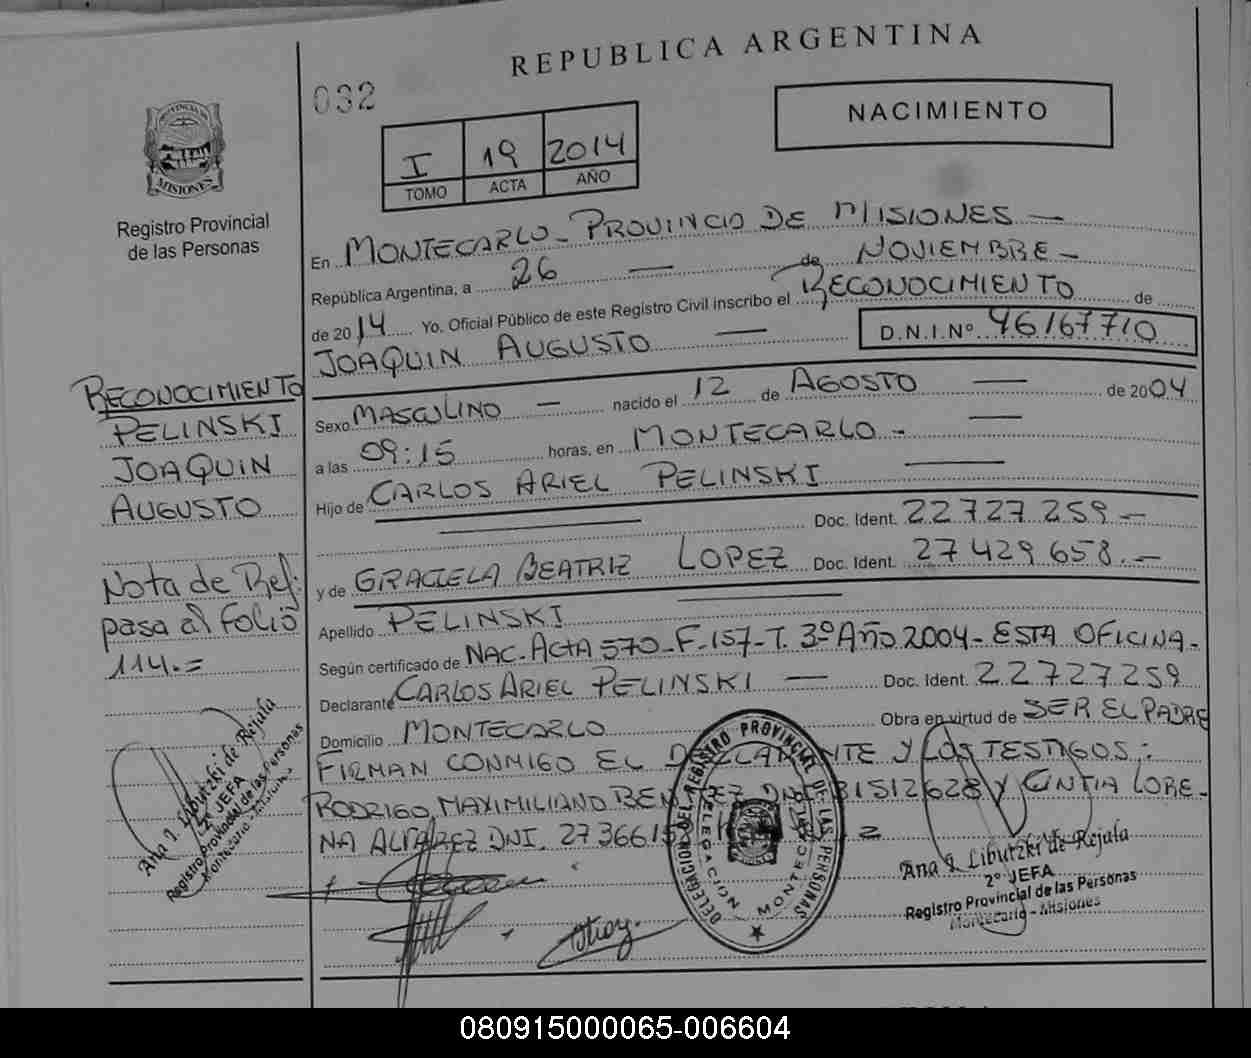 REPUBLICA ARGENTINA
032
NACIMIENTO
I 19 2014
TOMO ACTA AÑO
PROVINCIA DE
MISIONES
Registro Provincial
de las Personas
En MONTECARLO - PROVINCIA DE MISIONES —
República Argentina, a 26 — de NOVIEMBRE -
de 2014 Yo. Oficial Público de este Registro Civil inscribo el RECONOCIMIENTO de
JOAQUIN AUGUSTO — D.N.I.Nº 46167710
Sexo MASCULINO — nacido el 12 de AGOSTO — de 2004
a las 09:15 horas, en MONTECARLO - —
Hijo de CARLOS ARIEL PELINSKI —
Doc. Ident. 22727259 -
y de GRACIELA BEATRIZ LOPEZ Doc. Ident. 27429658.-
Apellido PELINSKI —
Según certificado de NAC. ACTA 570-F-157-T. 3º Año 2004- ESTA OFICINA-
Declarante CARLOS ARIEL PELINSKI — Doc. Ident. 22727259
Domicilio MONTECARLO Obra en virtud de SER EL PADRE
FIRMAN CONMIGO EL Y LOS TESTIGOS:
RODRIGO MAXIMILIANO 31512628 Y CINTIA LORE-
NA ALVAREZ DNI.
RECONOCIMIENTO
PELINSKI
JOAQUIN
AUGUSTO
Nota de Ref:
pasa al folio
114.=
Ana I. Libutzki de Rejala
2º JEFA
Registro Provincial de las Personas
Montecarlo - Misiones
DELEGACION DEL REGISTRO PROVINCIAL DE LAS PERSONAS
DELEGACION MONTECARLO
Ana I. Libutzki de Rejala
2º JEFA
Registro Provincial de las Personas
Montecarlo - Misiones
080915000065-006604